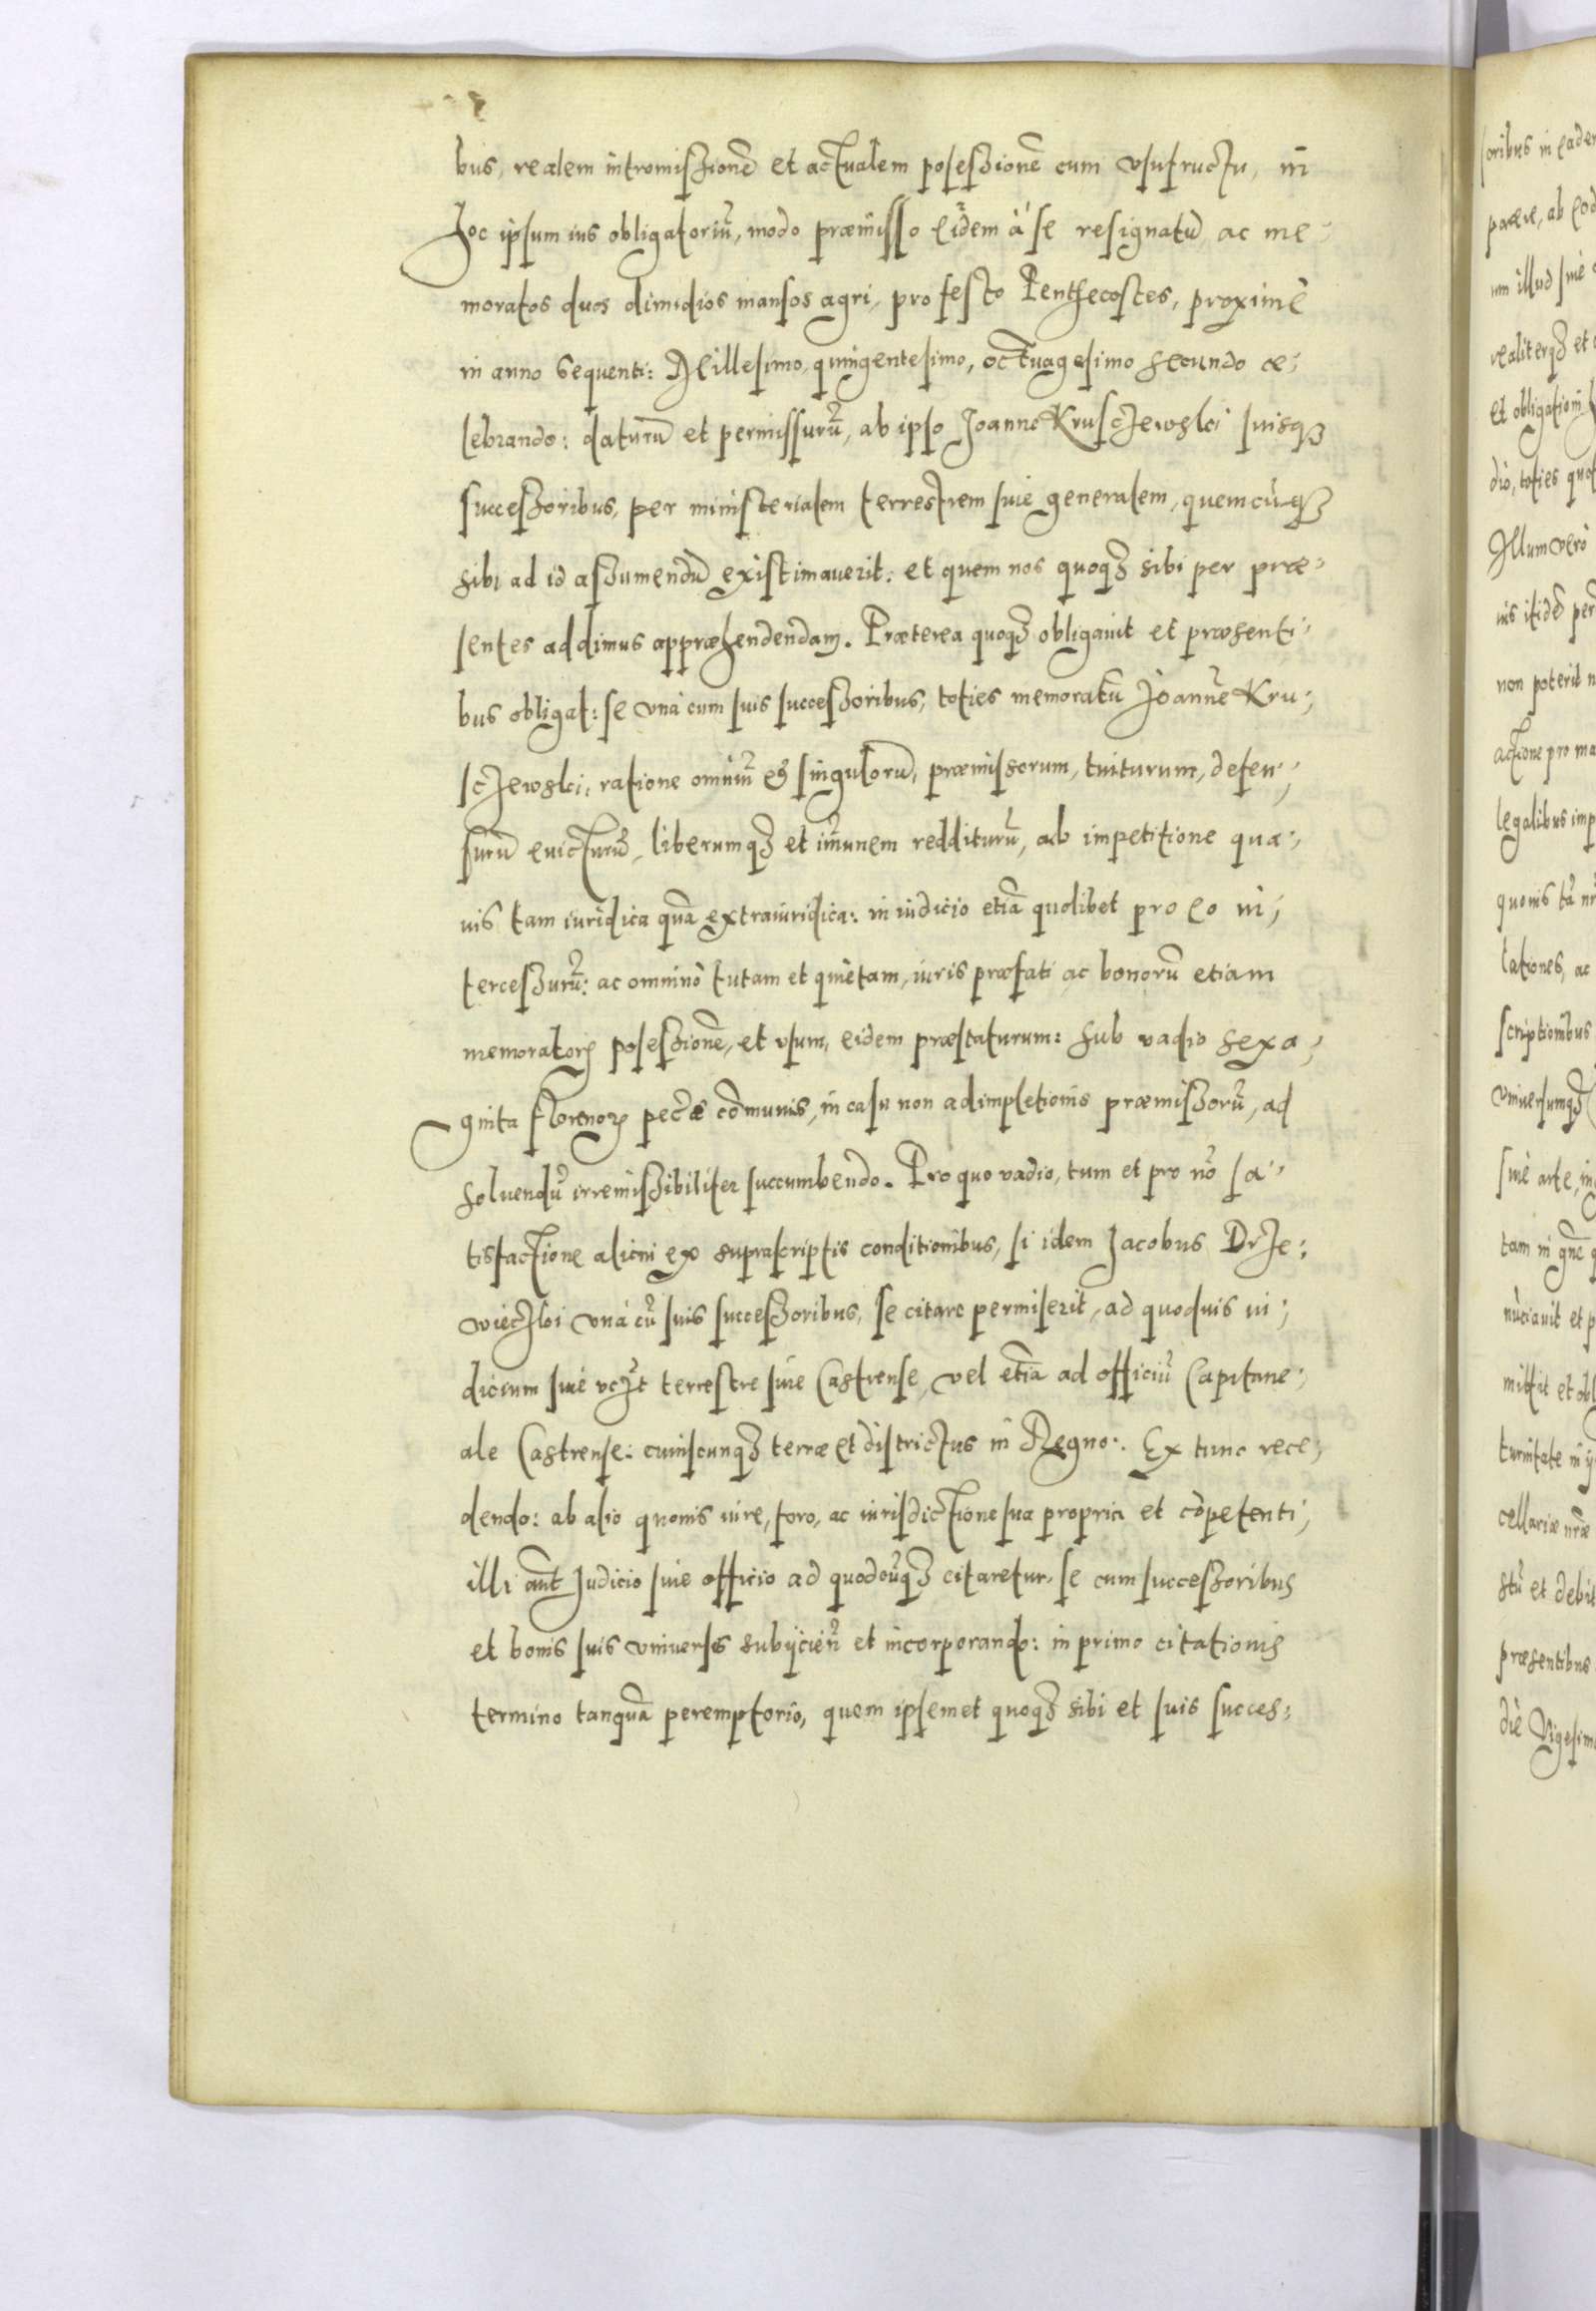 bus, realem intromissionẽ et actualem posessionẽ cum vsufructu, in
hoc ipsum ius obligatoriũ, modo præmisso eidem à se resignatũ ac me-
moratos duos dimidios mansos agri, pro festo Penthecostes, proximè
in anno sequenti: Millesimo, quingentesimo, octuagesimo secundo ce-
lebrando: daturũ et permissurũ, ab ipso Joanne Kruschewski suisqȝ
successoribus, per ministerialem terrestrem siue generalem, quemcũqȝ
sibi ad id assumendũ existimauerit: et quem nos quoqȝ sibi per præ-
sentes addimus appræhendendam. Præterea quoqȝ obligauit et præsenti-
bus obligat: se vnà cum suis successoribus, toties memoratũ Joannẽ Kru-
schewski, ratione omniũ et singulorũ, præmissorum, tuiturum, defen-
surũ euicturũ, liberumqȝ et im̃unem redditurũ, ab impetitione qua-
uis tam iuridica quã extraiuridica: in iudicio etiã quolibet pro eo in-
tercessurũ: ac omninò tutam et quietam, iuris præfati ac bonorũ etiam
memoratorꝝ posessionẽ, et vsum, eidem præstaturum: sub vadio sexa-
ginta florenorꝝ pecẽ cõmunis, in casu non adimpletionis præmissorũ, ad
soluendũ irremissibiliter succumbendo. Pro quo vadio, tum et pro nõ sa-
tisfactione alicui ex suprascriptis conditionibus, si idem Jacobus Drze-
wieczki vnà cũ suis successoribus, se citare permiserit, ad quoduis iu-
dicium siue terrestre siue Castrense, vel etiã ad officiũ Capitane-
ale Castrense: cuiuscunqȝ terræ et districtus in Regno. Ex tunc rece-
dendo: ab alio quouis iure, foro, ac iurisdictione sua propria et cõpetenti,
illi aut̃ Judicio siue officio ad quodcũqȝ citaretur, se cum successoribus
et bonis suis vniuersis subijcien̄ et incorporando: in primo citationis
termino tanquã peremptorio, quem ipsemet quoqȝ sibi et suis succes-